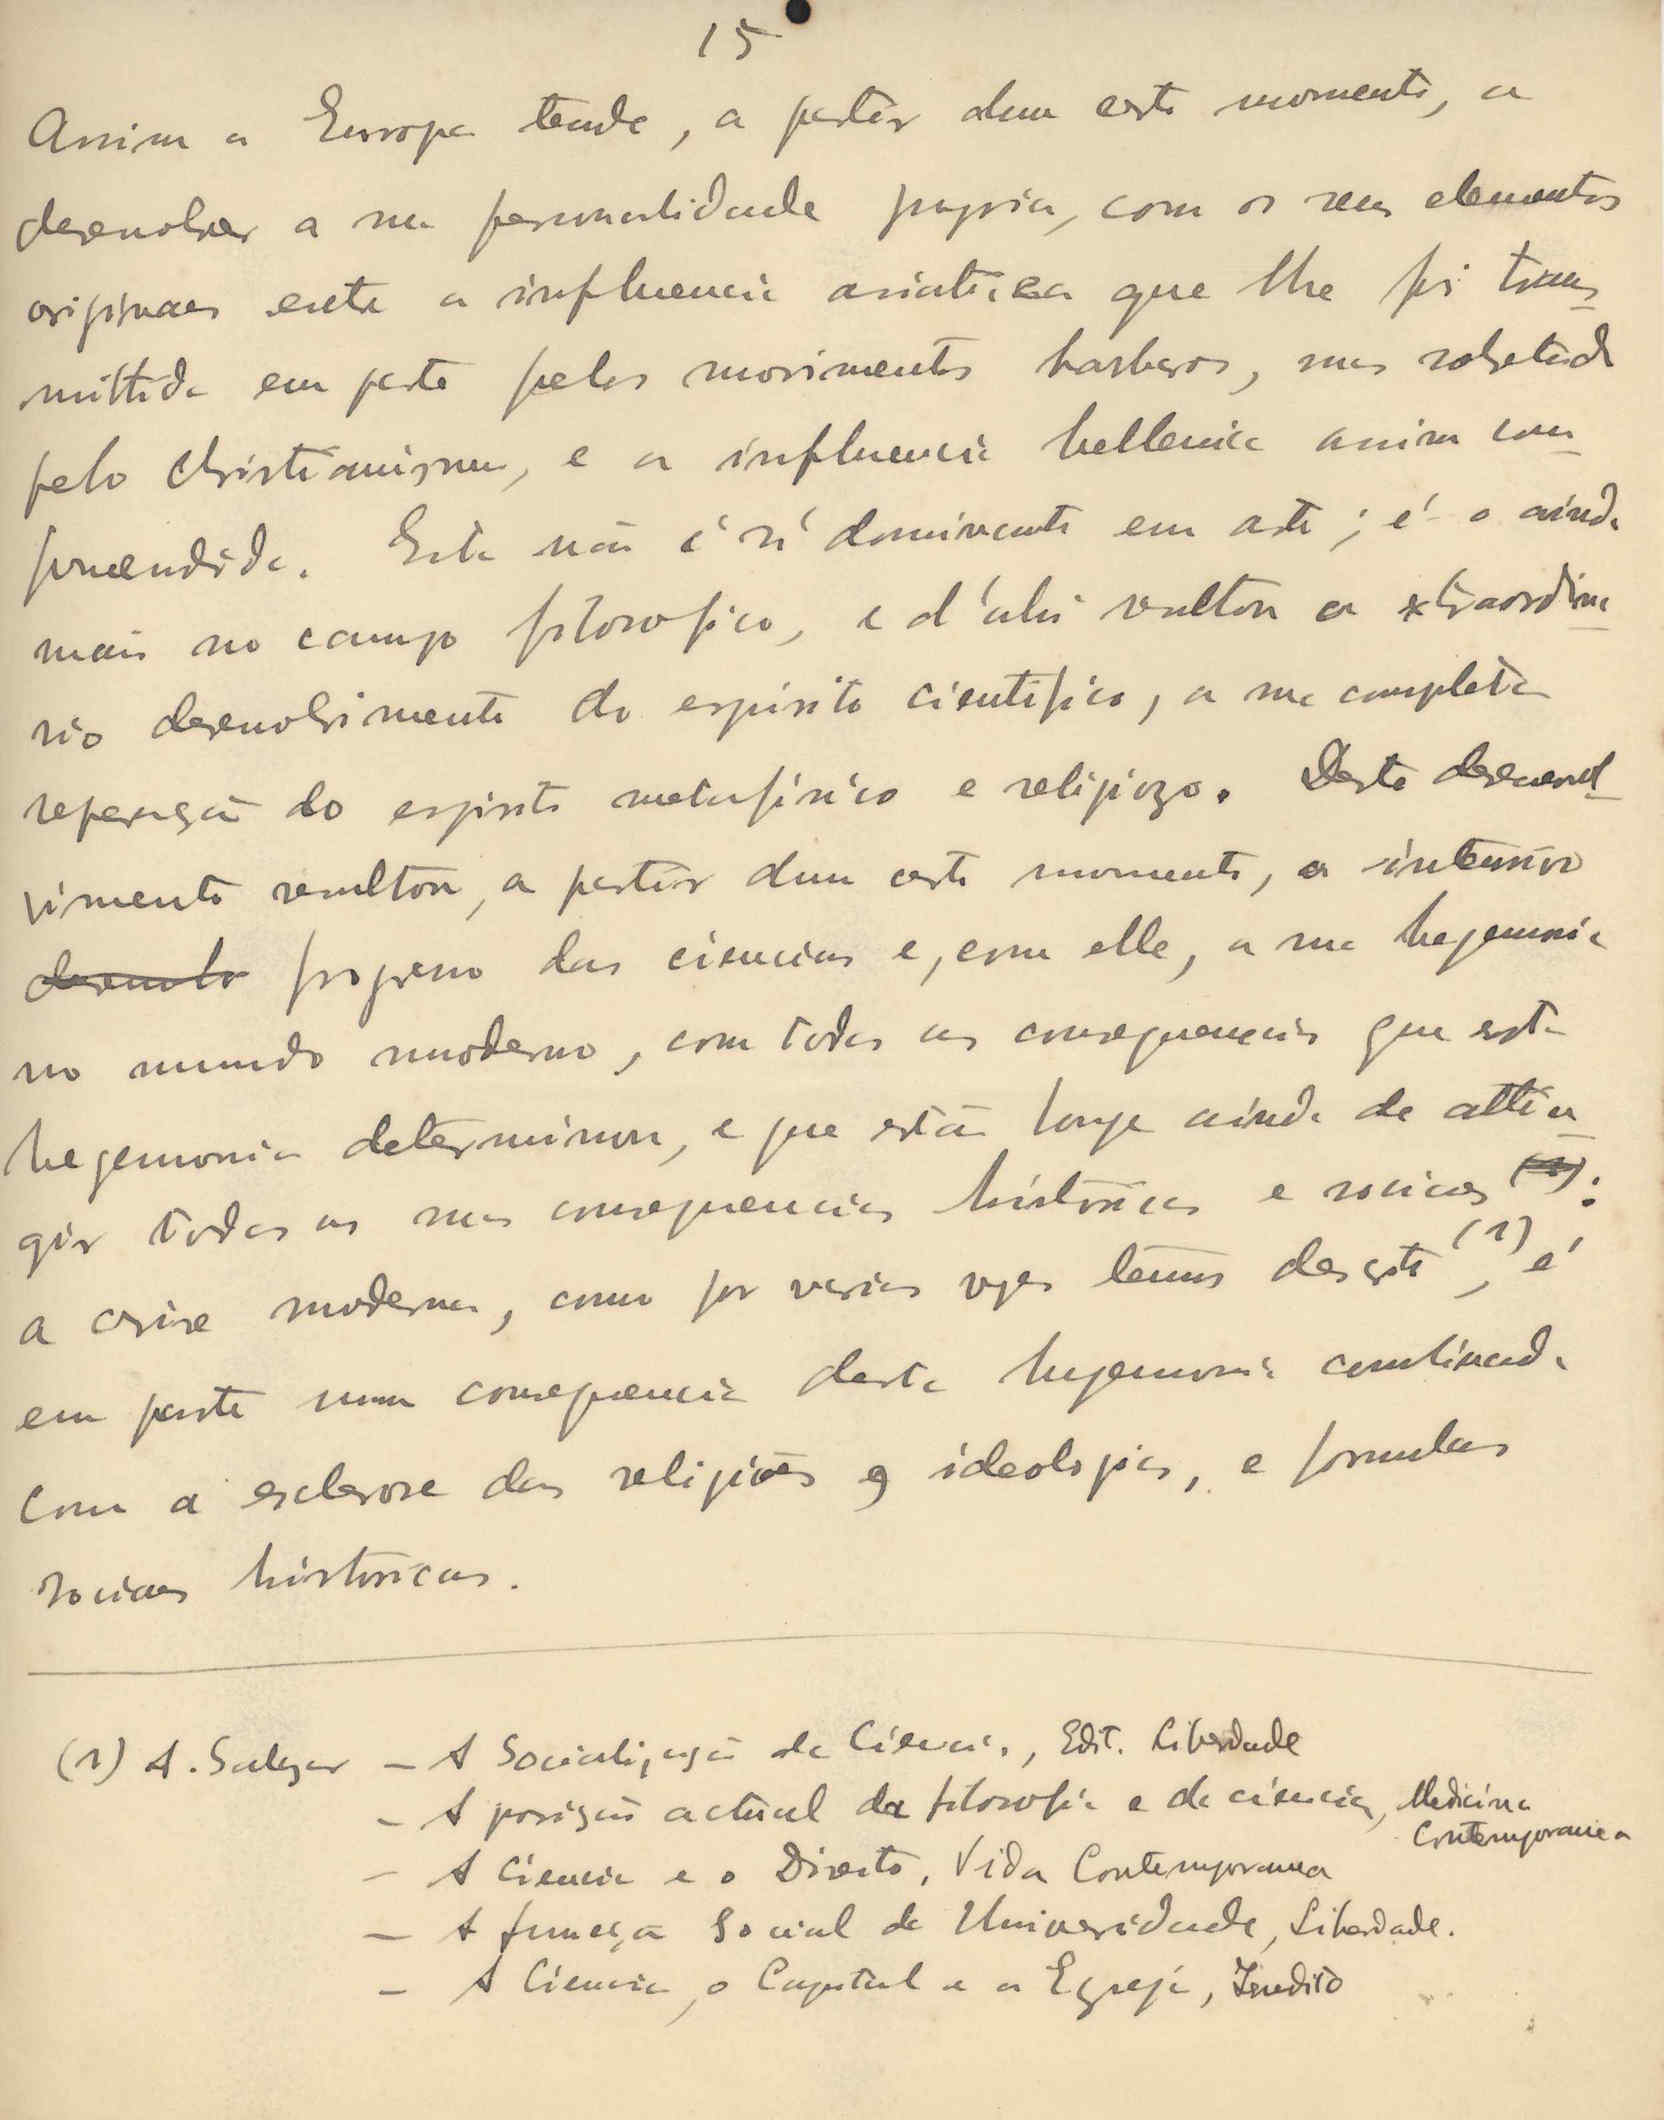 15
Assim a Europa tende, a partir dum certo momento, a
desenvolver a sua personalidade propria, com os seus elementos
originaes entre a influencia asiatica que lhe foi trans-
mittida em parte pelos movimentos barbaros, mas sobretudo
pelo Christianismo, e a influencia hellenica assim com-
prehendida. Esta não é só dominante em arte; é-o ainda
mais no campo filosofico, e d'ahi resultou o extraordina-
rio desenvolvimento do espirito cientifico, a sua completa
separação do espirito metafisico e religiozo. Deste desenvol-
vimento resultou, a partir dum certo momento, o intensivo
desenvolv progresso das ciencias e, com elle, a sua hegemonia
no mundo moderno, com todas as consequencias que esta
hegemonia determinou, e que estão longe ainda de attin-
gir todas as suas consequencias históricas e sociaes (1):
a crise moderna, como por varias vezes temos descrito (1), é
em parte uma consequencia desta hegemonia combinada
com a esclerose das religiões e ideologias, e formulas
sociaes históricas.
(1) A. Salazar – A Socialização da Ciencia, Edit. Liberdade
– A posição actual da filosofia e da ciencia, Medicina
Contemporanea
– A Ciencia e o Direito, Vida Contemporanea
– A função Social da Universidade, Liberdade.
– A Ciencia, o Capital e a Egreja, Inedito